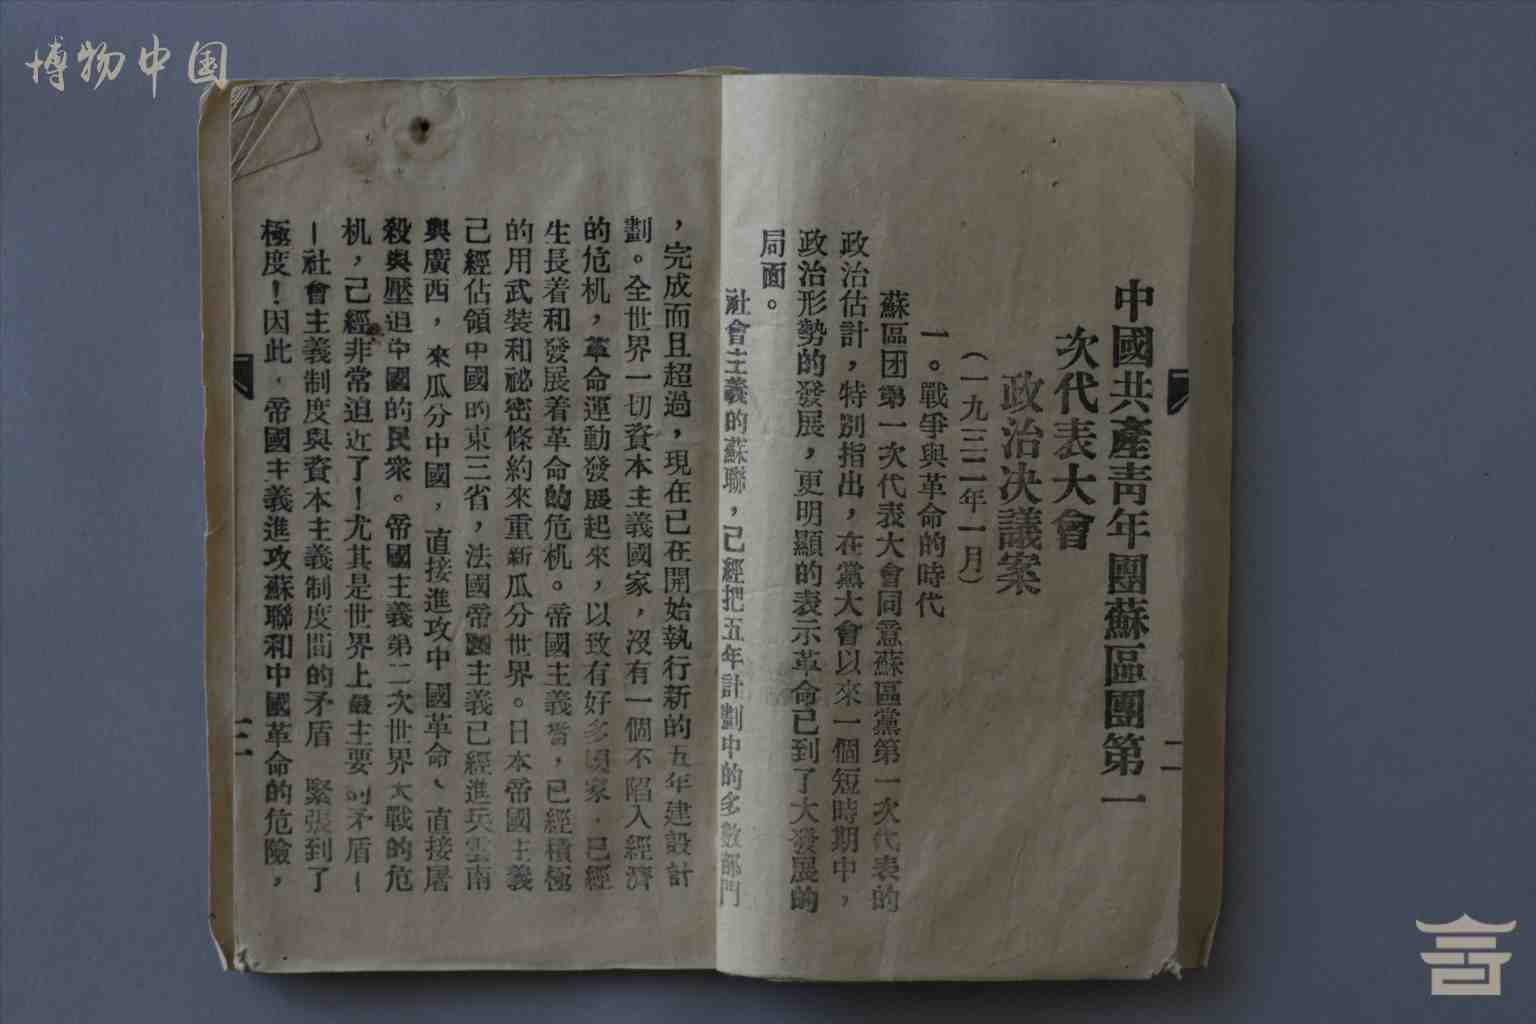 博物中国
中國共產青年團蘇區團第一
次代表大會
政治決議案
(一九三二年一月)
一。戰爭與革命的時代
蘇區团第一次代表大會同意蘇區黨第一次代表的
政治估計，特別指出，在黨大會以來一個短時期中，
政治形勢的發展，更明顯的表示革命已到了大發展的
局面。
社會主義的蘇聯，己經把五年計劃中的多數部門
二
，完成而且超過，現在已在開始執行新的五年建設計
劃。全世界一切資本主義國家，沒有一個不陷入經濟
的危机，革命運動發展起來，以致有好多國家，已經
生長着和發展着革命的危机。帝國主義者，已經積極
的用武裝和祕密條約來重新瓜分世界。日本帝國主義
己經佔領中國的東三省，法國帝國主義已經進兵雲南
與廣西，來瓜分中國，直接進攻中國革命、直接屠
殺與壓迫中國的民衆。帝國主義第二次世界大戰的危
机，己經非常迫近了！尤其是世界上最主要的矛盾—
—社會主義制度與資本主義制度間的矛盾 緊張到了
極度！因此，帝國主義進攻蘇聯和中國革命的危險，
三